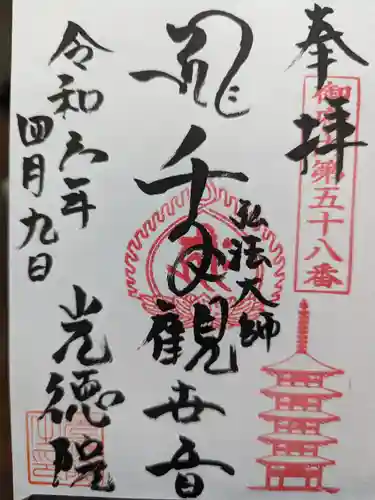 奉拝
御府内第五十八番
千手観世音
弘法大師
令和六年
四月九日
光徳院